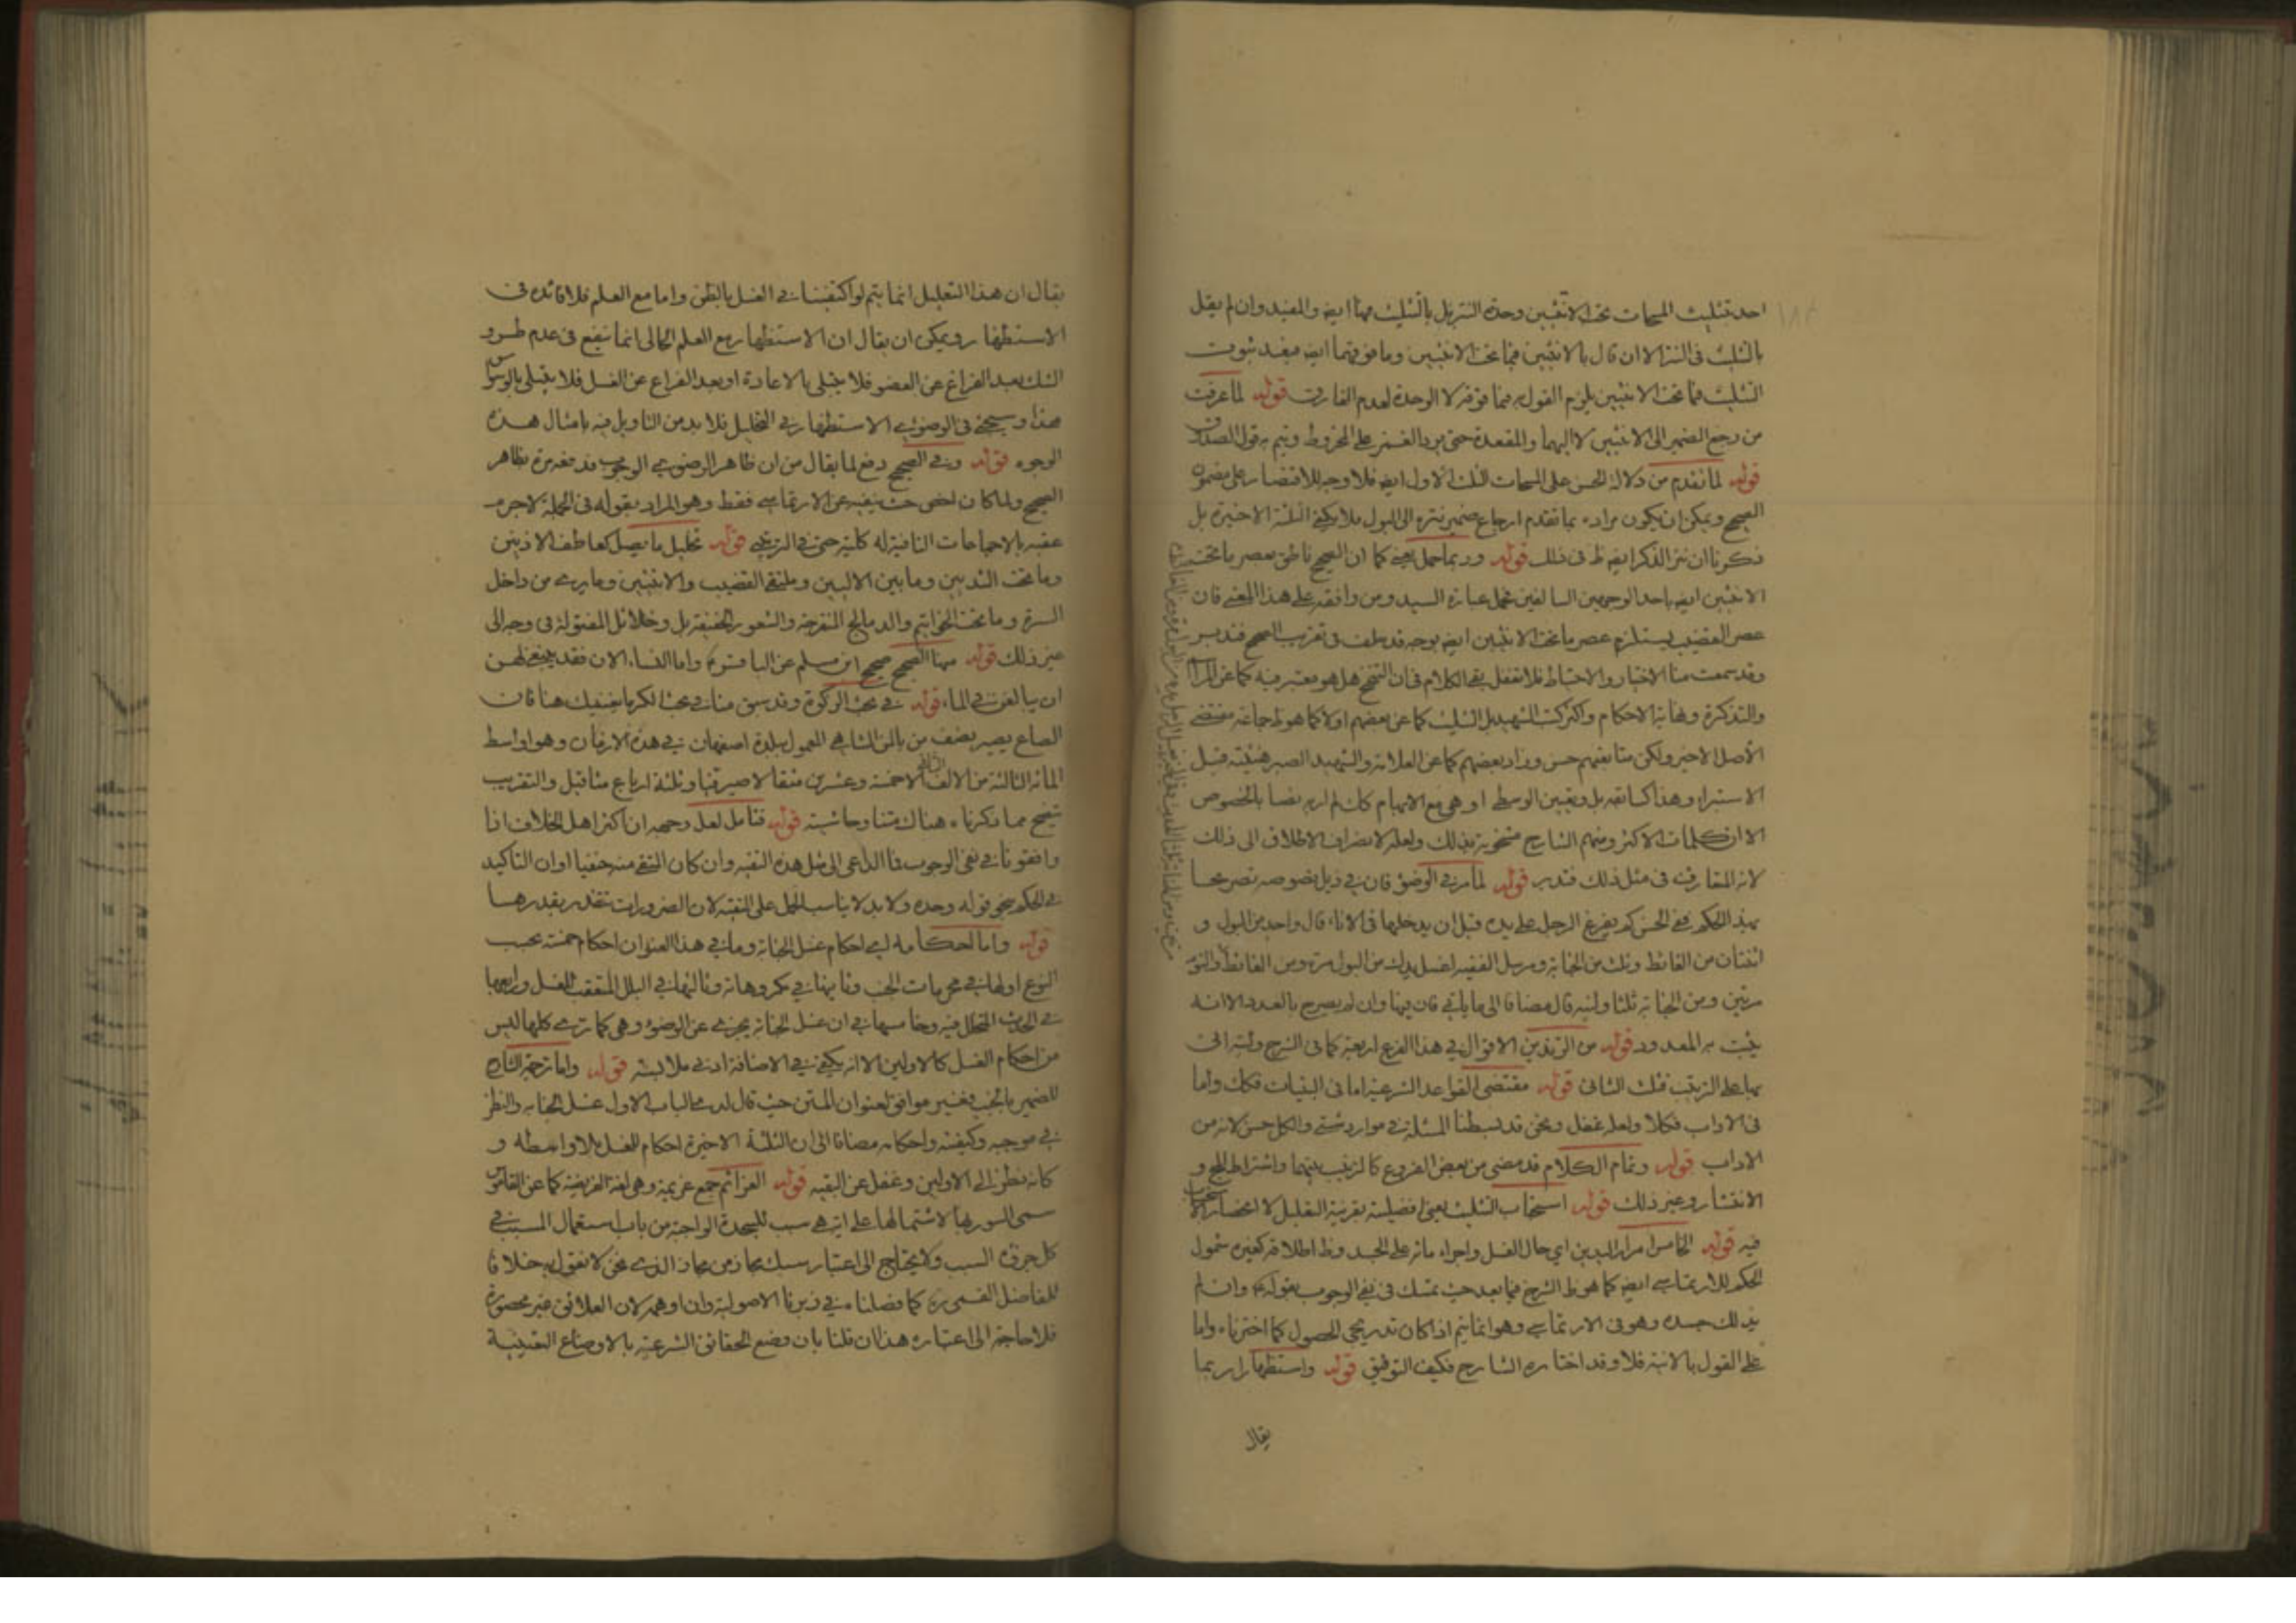 احد تثليث المسحات تحت الانثيين وحدة التنزيل بالتثليث مهنا ايضه والمفيد وان لم يقل
بالتثليث في النتر الا ان قال بالاثنين فيما تحت الانثيين وما فوقهما ايضه مفيد ثبوت
التثليث فما تحت الانثيين يلزم القول به فيما فوقه لا الوحدة لعدم الفارق قوله لما عرفت
من رجع الضمير الى الانثيين لا اليهما والمقعدة حتى يرد الغمز على المخروط ويتم به قول الصدوق
قوله لما تقدم من دلالة الحسن على المسحات الثلث الاول ايضه فلا وجه للاقتصار على مضمون
الصحيح ويمكن ان يكون مراده بما تقدم ارجاع ضمير نتره الى البول فلا يكفي الثلثة الاخيرة بل
ذكرنا ان نتر الذكر ايضه ظ في ذلك قوله وربما حمل يعني كما ان الصحيح ناطق بعصر ما تحت
الانثيين ايضه باحد الوجهين السالفين تحمل عبارة السيد ومن وافقه على هذا المعنى فان
عصر القضيب يستلزم عصر ما تحت الانثيين ايضه بوجه قد سلف في تقريب الصحيح فتدبر
وقد سمعت منا الاختيار والاحتياط فلا تغفل بقي الكلام في ان التنحنح هل هو معتبر فيه كما عن
والتذكرة ونهاية الاحكام واكثر كتب الشهيد بل التثليث كما عن بعضهم اولا كما هو ظ جماعة مقتضى
الأصل الاخير ولكن متابعتهم حسن وزاد بعضهم كما عن العلامة والشهيد الصبر هنيئة قبل
الاستبراء وهذا كسابقه بل وتعيين الوسطى او هي مع الابهام كان لم اربه نصا بالخصوص
الا ان كلمات الاكثر ومنهم الشارح مشحونة بذلك ولعله لانصراف الاطلاق الى ذلك
لانه المتعارف في مثل ذلك فتدبر قوله لما مر في الوضوء فان في ذيل نصوصه تصريحا
بهذا الحكم ففي الحسن كم يفرغ الرجل على يده قبل ان يدخلها في الاناء قال واحد من البول و
اثنتان من الغائط وثلث من الجنابة ومرسل الفقيه اغسل يدك من البول مرة ومن الغائط والنوم
مرتين ومن الجنابة ثلثا وفيه قال مضافا الى ما ياتي فان فيها وان لم يصرح بالعدد الا انه
يثبت به المعدود قوله من الاقوال في هذا الفرع اربعة كما في الشرح
قوله مقتضى القواعد الشرعية اما في النيات فكك واما
في الاداب فكلا ولعله غفل ونحن قد بسطنا المسئلة في موارد شتى والكل حسن لانه من
الاداب قوله وتمام الكلام قد مضى من بعض الفروع كالترتيب بينهما واشتراط المج و
الانتشار وغير ذلك قوله استحباب التثليث يعني افضليته بقرينة التعليل لا انحصار الاستحباب
فيه قوله الخامس امرار اليدين اي حال الغسل واجراء مائه على الجسد وظ اطلاقه كغيره شمول
الحكم للارتماسي ايضه كما هو ظ الشرح فيما بعد حيث تمسك في نفي الوجوب بقوله ع وان لم
يدلك جسده وهو في الارتماسي وهو انما يتم اذا كان تدريجي الحصول كما اخترناه واما
على القول بالانية فلا وقد اختاره الشارح فكيف التوفيق قوله واستظهارا ربما
يقال
يقال ان هذا التعليل انما يتم لو اكتفينا في الغسل بالظن واما مع العلم فلا فائدة في
الاستظهار ويمكن ان يقال ان الاستظهار مع العلم الحالي انما تنفع في عدم طرو
الشك بعد الفراغ عن العضو فلا يبتلي بالاعادة او بعد الفراغ عن الغسل فلا يبتلي بالوسواس
هذا وسيجئ في الوضوئي الاستظهار في التخليل فلا بد من التاويل فيه بامثال هذه
الوجوه قوله وفي الصحيح دفع لما يقال من ان ظاهر الرضوي الوجوب فدفعه مرة بظاهر
الصحيح ولما كان اخص حيث ينفيه عن الارتماسي فقط وهو المراد بقوله في الجملة لاجرم
عقبه بالاجماعات النافية له كلية حتى في الترتيبي قوله تخليل ما يصل كمعاطف الاذنين
وما تحت الثديين وما بين الاليين وملتقى القضيب والانثيين وما يرى من داخل
السرة وما تحت الخواتيم والدمالج المنفرجة والشعور الخفيفة بل وخلائل المفتولة في وجه الى
غير ذلك قوله مهنا الصحيح صحيح ابن مسلم عن الباقر ع واما النساء الان فقد ينبغي لهن
ان يبالغن في الماء قوله في بحث الزكوة وقد سبق منا في بحث الكر ما يغنيك هنا فان
الصاع يصير نصف من بالمن الشاهي المعمول ببلدة اصفهان في هذه الازمان وهو اواسط
المائة الثالثة من الالف الثاني الا خمسة وعشرين مثقالا صيرفيا وثلثة ارباع مثاقيل والتقريب
يتضح مما ذكرناه هناك متنا وحاشية قوله فتامل لعل وجهه ان اكثر اهل الخلاف اذا
وافقونا في نفي الوجوب فما الداعي الى مثل هذه التقية وان كان المتقى منه حنفيا او ان التاكيد
في الحكم بنحو قوله وحده ولا بد لا يناسب الحمل على التقية لان الضرورات تتقدر بقدرها
قوله واما احكامه اي احكام غسل الجنابة وما في هذا العنوان احكام خمسة بحسب
النوع اولها في محرمات الجنب وثانيها في مكروهاته وثالثها في البلل المتعقب للغسل ورابعها
في الحدث المتخلل فيه وخامسها في ان غسل الجنابة يجزي عن الوضوء وهي كما ترى كلها ليس
من احكام الغسل كالاولين الا انه يكفي في الاضافة ادنى ملابسة قوله واما ترجمة الشارح
للضمير بالجنب فغير موافق لعنوان المتن حيث قال لدى الباب الاول غسل الجنابة والنظر
في موجبه وكيفيته واحكامه مضافا الى ان الثلثة الاخيرة احكام للغسل بلا واسطة و
كانه نظر الى الاولين وغفل عن البقية قوله العزائم جمع عزيمة وهي لغة الفريضة كما عن القاموس
سمى السور بها لاشتمالها على اية هي سبب للسجدة الواجبة من باب استعمال المسبب في
كل جزئه السبب ولا يحتاج الى اعتبار سبك مجاز من مجاز الذي نحن لا نقول به خلافا
للفاضل القمي ره كما فصلناه في زبرنا الاصولية وان اوهم لان العلائق غير محصورة
فلا حاجة الى اعتباره هذا ان قلنا بان وضع الحقائق الشرعية بالاوضاع التعينية